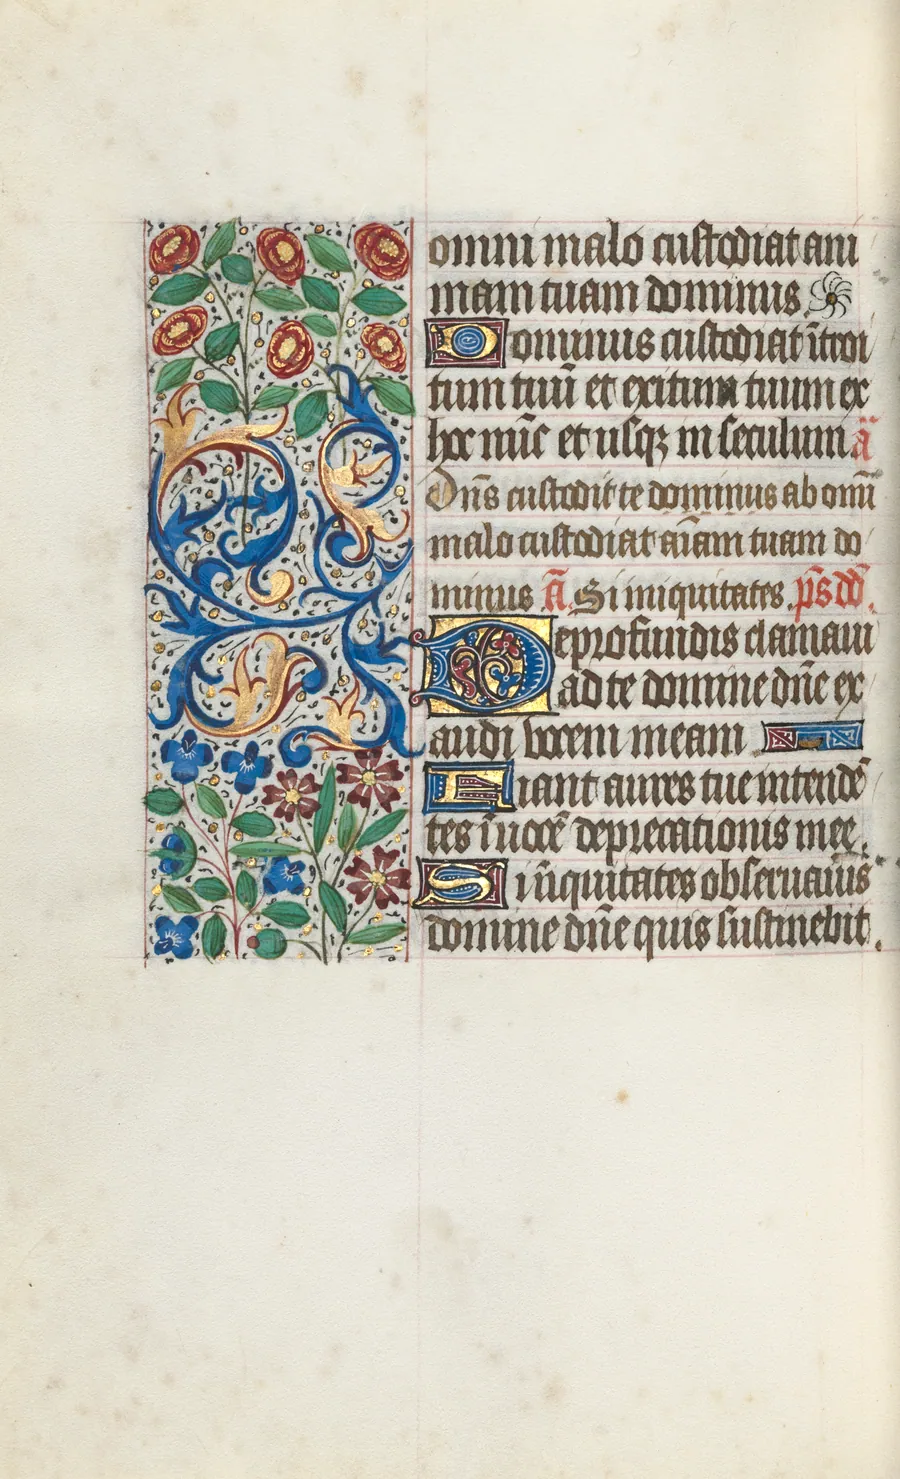 omni malo custodiat ani
mam tuam dominus
Dominus custodiat ītroi
tum tuū et exitum tuum ex
hoc nūc et usqꝫ in seculum ā
Dn̄s custodit te dominus ab omī
malo custodiat aīam tuam do
minus ā. Si iniquitates. ps̄ dd̄.
De profundis clamaui
ad te domine dn̄e ex
audi vocem meam
Fiant aures tue intendē
tes ī uocē deprecationis mee.
Si īiquitates obseruauis̄
domine dn̄e quis sustinebit.